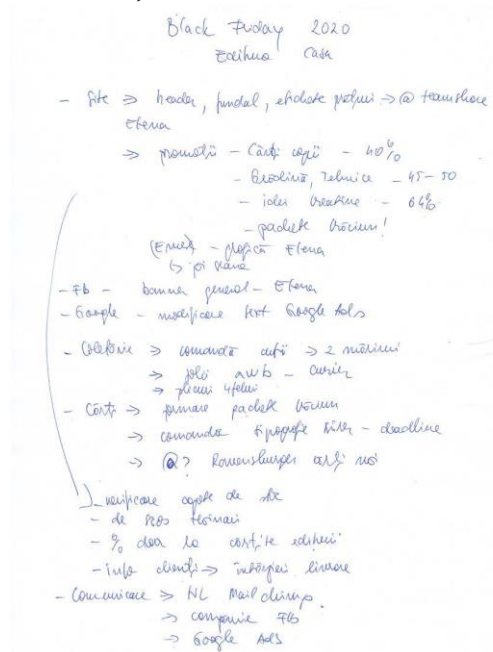 Black Friday 2020
Editura Casa
- Site => header, fundal, etichete prețuri -> @ teamshare
Elena
=> promoții - Cărți copii - 40%
- Grădină, Tehnice - 45-50
- idei creative - 64%
- pachete Crăciun!
(Email) - grafică Elena
↳ joi seara
- Fb - banner general - Elena
- Google - modificare text Google Ads
- Coletărie => comandă cutii -> 2 mărimi
=> role awb - curier
=> plicuri 4 feluri
- Cărți => formare pachete Crăciun
=> comandă tipografie - deadline
-> @? cărți noi
- verificare capete de stoc
- de scos
- % doar la cărțile editurii
- info clienți => întârzieri livrare
- Comunicare => NL Mailchimp
-> campanie Fb
-> Google Ads